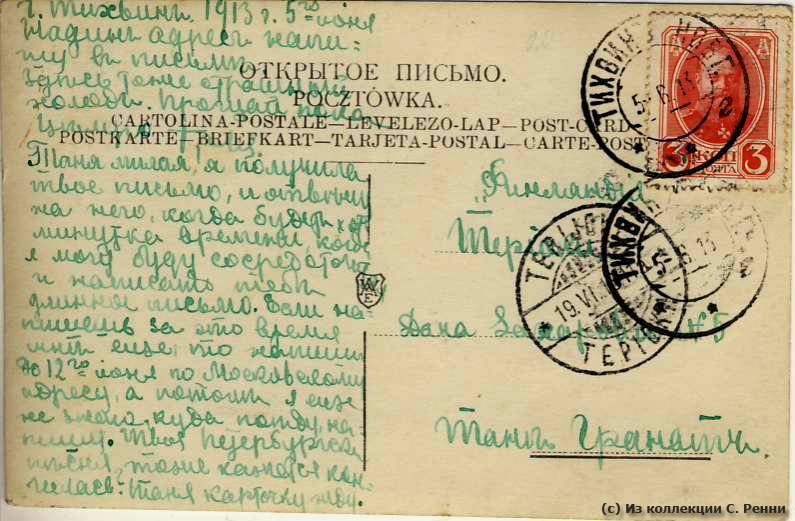 г. Тихвинъ 1913 г. 5го іюня
Надинъ адресъ напи-
шу въ письмѣ
Здѣсь тоже страшный
холодъ. Прощай пока
Цѣлую
ОТКРЫТОЕ ПИСЬМО.
POCZTÓWKA.
CARTOLINA-POSTALE—LEVELEZO-LAP—POST-CARD
POSTKARTE—BRIEFKART—TARJETA-POSTAL—CARTE-POST
Таня милая, я получила
твое письмо, и отвѣчу
на него, когда будетъ
минутка времени, когда
я могу буду сосредоточ
и написать тебѣ
длинное письмо. Если на-
пишешь за это время
мнѣ еще, то напиши
до 12го іюня по Московскому
адресу, а потомъ я еще
не знаю, куда поѣду, на-
пишу. Твоя Петербургская
пѣсня, тоже кажется кон-
чилась. Таня карточку жду.
Финляндія
Дача № 5
Танѣ Гранатъ.
ТИХВИНЪ НОВГ.
5 6 13
2
3 КОП 3
ПОЧТА
TERIJOKI
19.VI.
ТЕРІОКИ
ТИХВИНЪ
5 6 13
W
E
(c) Из коллекции С. Ренни